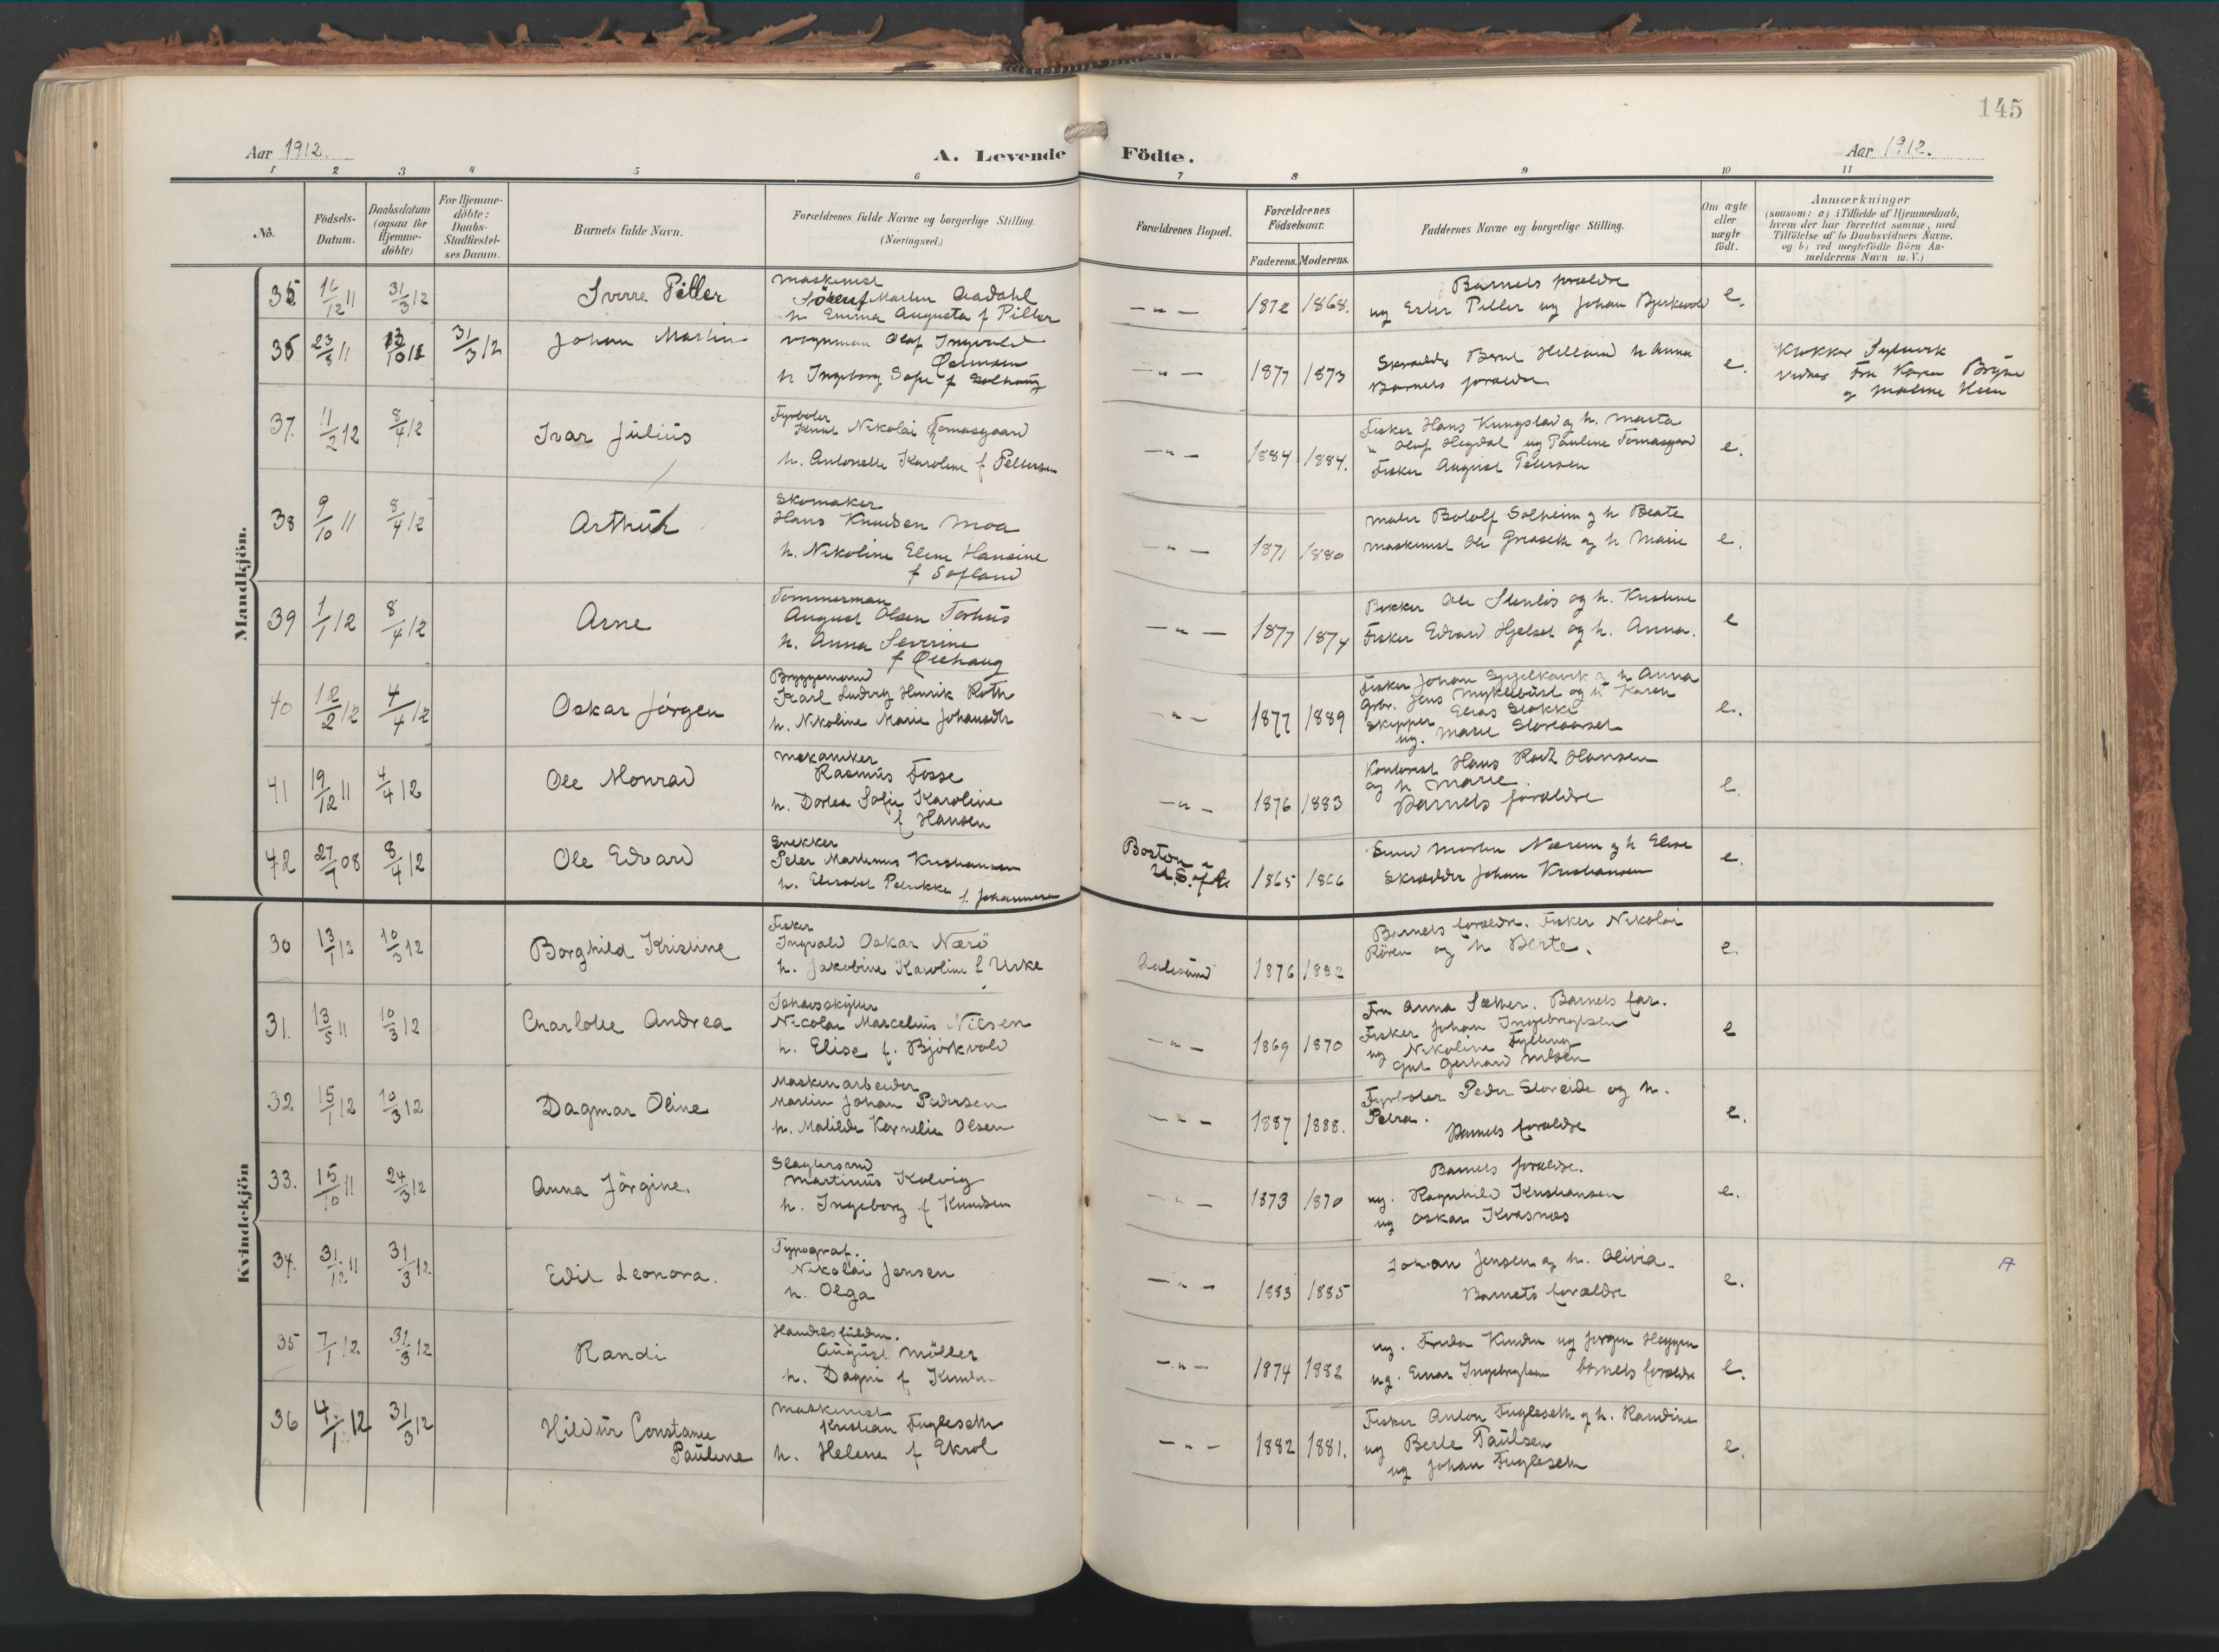 145
Aar 1912.
A. Levende Födte.
Aar 1912.
1 2 3 4 5 6 7 8 9 10 11
No.
Födsels-Datum.
Daabsdatum (ogsaa for Hjemme-döbte)
For Hjemme-döbte: Daabs-Stadfæstel-ses Datum.
Barnets fulde Navn.
Forældrenes fulde Navne og borgerlige Stilling.
(Næringsvei.)
Forældrenes Bopæl.
Forældrenes Födselsaar.
Faderens. Moderens.
Faddernes Navne og borgerlige Stilling.
Om ægte eller uægte födt.
Anmærkninger
(saasom: a) i Tilfælde af Hjemmedaab,
hvem der har forrettet samme, med
Tilföielse af to Daabsvidners Navne,
og b) ved uægtefödte Börn An-
melderens Navn m. V.)
Mandkjön.
35 12 11 31/3 12 Sverre Piller
Maskinist
Martin Aadahl
h. Emma Augusta f Piller
— " — 1872 1868.
Barnets forældre
ug Ester Piller ug Johan Bjerkevold
e.
36 23 11 31/3 12 Johan Martin
Vognman Olaf Ingvald
h Ingeborg f Solhaug
— " — 1877 1873
Skrædder Bernt Helland h Anna
Barnets forældre
e.
Klokker
vidner Fru Karen
og Malene
37. 11/2 12 8/4 12 Ivar Julius
Fyrböter
Knut Nikolai Tomasgaard
h. Antonette Karoline f Pettersen
— " — 1884 1884.
Fisker Hans og h. Marta
" Olaf Hegdal ug Pauline Tomasgaard
Fisker August Petersen
e.
38 9/10 11 8/4 12 Arthur
Skomaker
Hans Knudsen Moa
h. Nikoline Eline Hansine
f Sofland
— " — 1871 1880
Maler Bololf Solheim og h Beate
Maskinist Ole og h Marie
e.
39 1/1 12 8/4 12 Arne
Tømmerman
August Olsen
h. Anna Severine
f Øiehaug
— " — 1877 1874
Bøkker Ole og h. Kristine
Fisker Edvard Hjelset og h. Anna.
e
40 12/2 12 4/4 12 Oskar Jørgen
Bryggemand
Karl Ludvig Henrik Roth
h. Nikoline Marie Johansdtr
— " — 1877 1889
Fisker Johan Spjelkavik og h Anna
Grbr. Jens Myklebust og h Karen
Skipper Elias Stokke
ug. Marie
e.
41 19/12 11 4/4 12 Ole Monrad
Mekaniker
Rasmus Fosse
h. Dortea Sofie Karoline
f Hansen
— " — 1876 1883
Kontorist Hans Hansen
og h Marie.
Barnets forældre
e.
42 27/7 08 8/4 12 Ole Edvard
Snekker
Peter Martinus Kristiansen
h. Elisabet Petrikke f. Johannesen
Boston
U.S. of A.
1865 1866
Martin Nærem og h Elise
Skrædder Johan Kristiansen
e.
Kvindekjön
30 13/1 12 10/3 12 Borghild Kristine
Fisker
Ingvald Oskar Nærö
h. Jakobine Karoline f Urke
Aalesund 1876 1882
Barnets forældre. Fisker Nikolai
Rören og h Berte.
e.
31. 13/5 11 10/3 12 Charlotte Andrea
Ishavsskytter
Nicolai Marcelius Nilsen
h. Elise f. Björkvold
— " — 1869 1870
Fru Anna Sæther. Barnets far.
Fisker Johan Ingebrigtsen
ug Nikoline Fylling
Gut Gerhard Nilsen
e
32 15/1 12 10/3 12 Dagmar Oline
Maskinarbeider
Martin Johan Pedersen
h. Matilde Kornelie Olsen
— " — 1887 1888.
Fyrböter Peder Storeide og h.
Petra.
Barnets forældre
e.
33. 15/10 11 24/3 12 Anna Jörgine.
Slagtersvend
Martinus Kolvig
h. Ingeborg f Knudsen
— " — 1873 1870
Barnets forældre.
ug. Ragnhild Kristiansen
ug Oskar Kvasnes
e.
34. 31/12 11 31/3 12 Edit Leonora.
Typograf.
Nikolai Jensen
h. Olga
— " — 1883 1885
Johan Jensen og h. Olivia.
Barnets forældre
e.
35 7/1 12 31/3 12 Randi
Handelsfuldm.
August Müller
h. Dagni f
— " — 1874 1882
ug. Frida ug Jörgen Heggen
ug. Einar Ingebrigtsen barnets forældre
e.
36 4/1 12 31/3 12 Hildur Constanse
Pauline
Maskinist
Kristian Fugleseth
h. Helene f Ekrol
— " — 1882 1881.
Fisker Anton Fugleseth og h. Randine
ug Berte Paulsen
ug Johan Fugleseth
e.